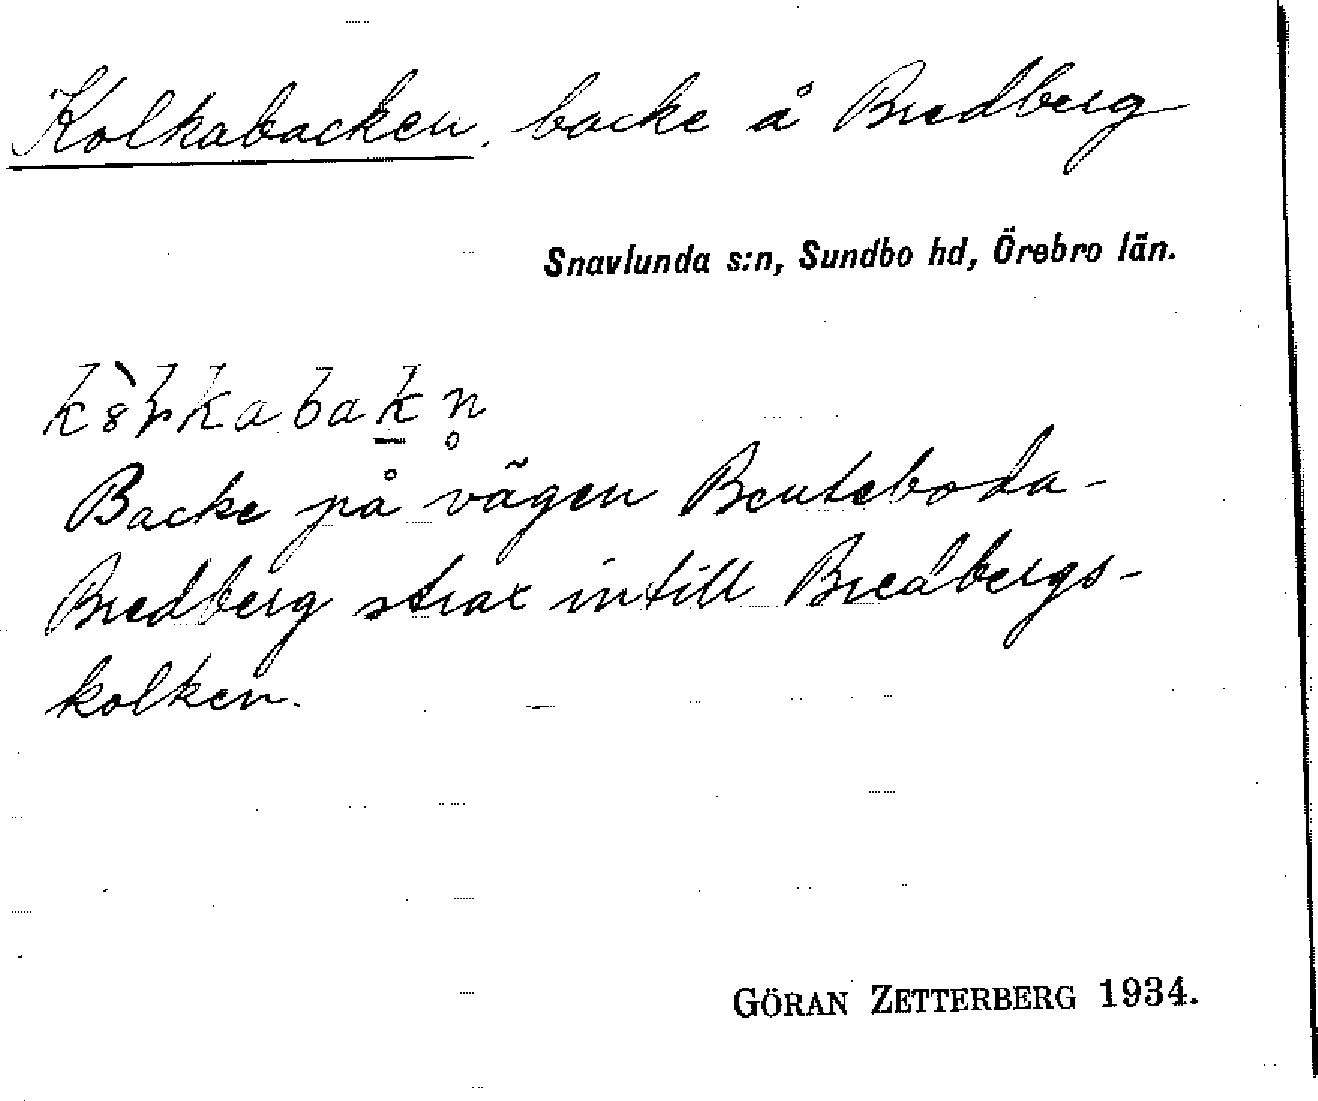 Kolkabacken, backe å Bredberg
Snavlunda s:n, Sundbo hd, Örebro län.
Backe på vägen Benteboda-
Bredberg strax intill Bredbergs-
kolken.
GÖRAN ZETTERBERG 1934.